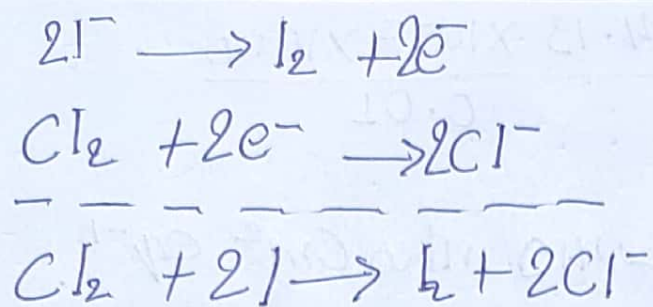 2I⁻ ⟶ I₂ + 2e⁻
Cl₂ + 2e⁻ ⟶ 2Cl⁻
Cl₂ + 2I ⟶ I₂ + 2Cl⁻